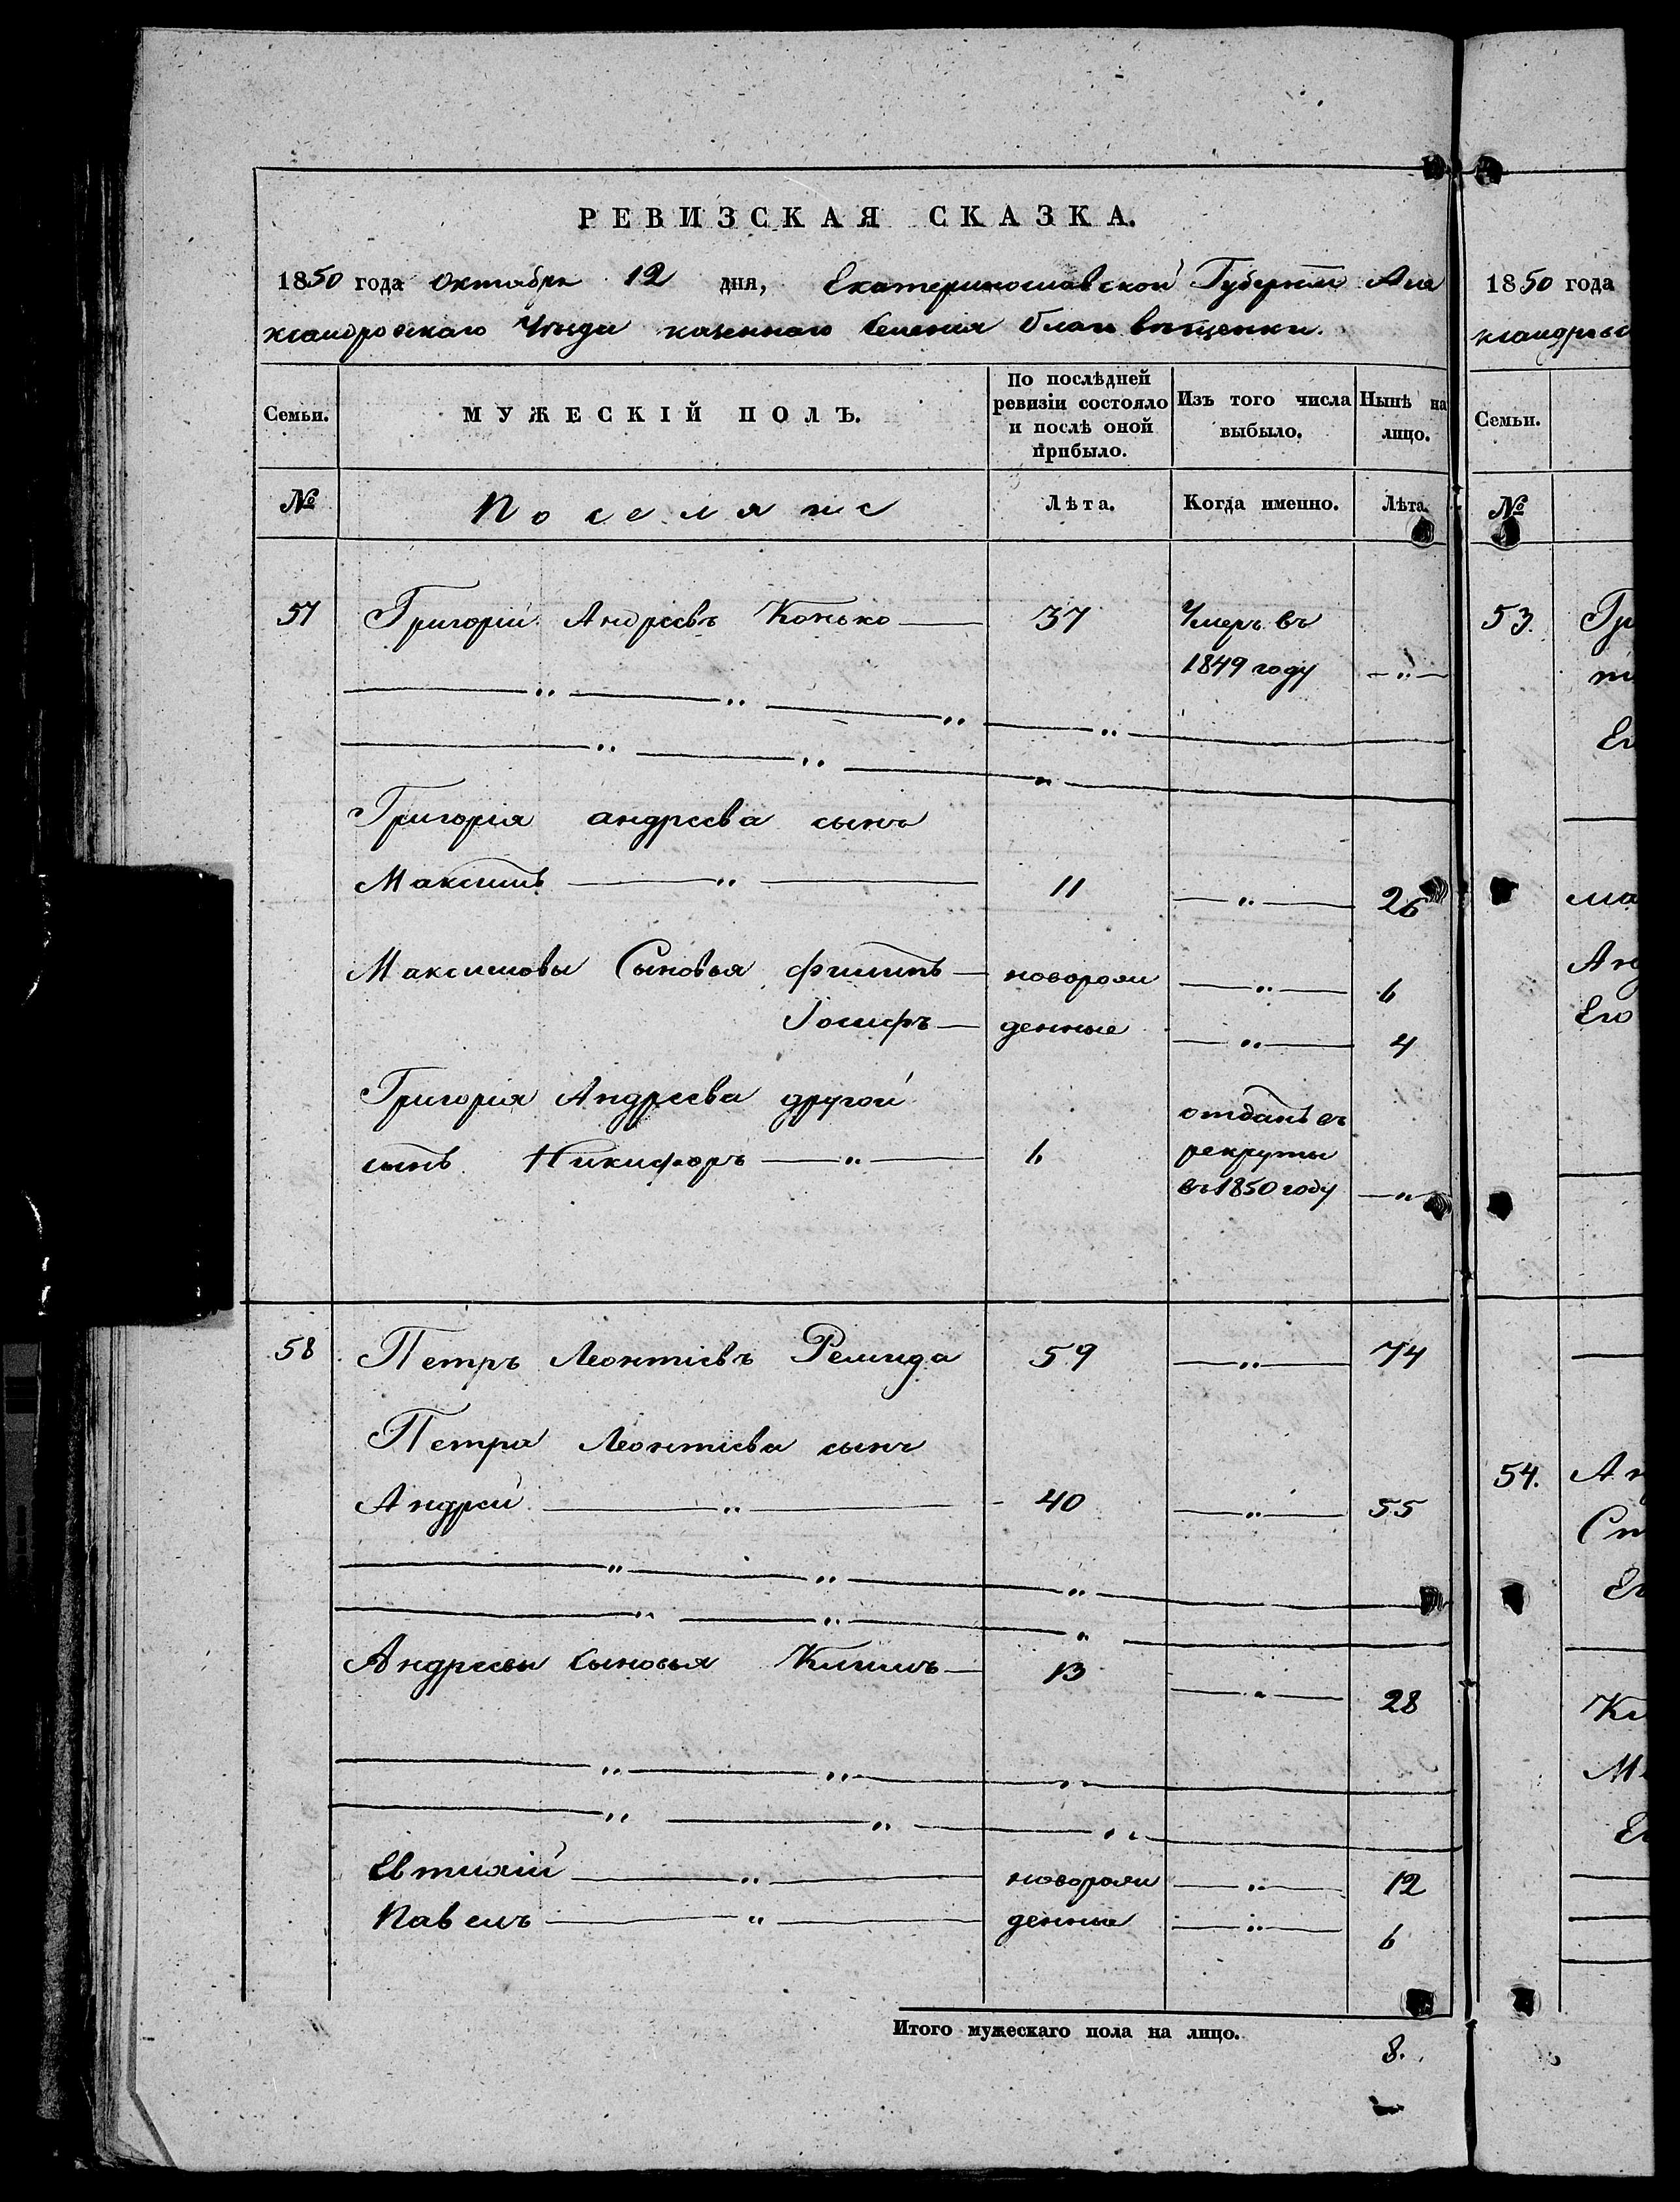 РЕВИЗСКАЯ СКАЗКА.
1850 года Октября 12 дня, Екатеринославской Губернiи Але
ксандровскаго Уѣзда казеннаго Селенiя Благовѣщенки.
Семьи. МУЖЕСКІЙ ПОЛЪ. По послѣдней ревизіи состояло и послѣ оной прибыло. Изъ того числа выбыло. Нынѣ на лицо.
№ Поселяне Лѣта. Когда именно. Лѣта.
57 Григорій Андреевъ Конько 37 Умеръ въ
1849 году — „ —
Григорія андреева сынъ
Максимъ — „ — 11 — „ — 26
Максимовы Сыновья Филипъ — новорож — „ — 6
Іосифъ — денные — „ — 4
Григорія Андреева другой отданъ въ
сынъ Никифоръ — „ — 6 рекруты
въ 1850 году — „
58 Петръ Леонтіевъ Ремида 59 — „ — 74
Петра Леонтіева сынъ
Андрей — „ — 40 — „ — 55
Андреевы Сыновья Климъ — 13 — „ — 28
Евтихій — „ — новорож — „ — 12
Павелъ — „ — денные — „ — 6
Итого мужескаго пола на лицо. 8.
1850 года
ксандровс
Семьи.
№
53. Гр
Ег
ма
Анд
Его
54. Ан
Ст
Ег
Кл
М
Ег